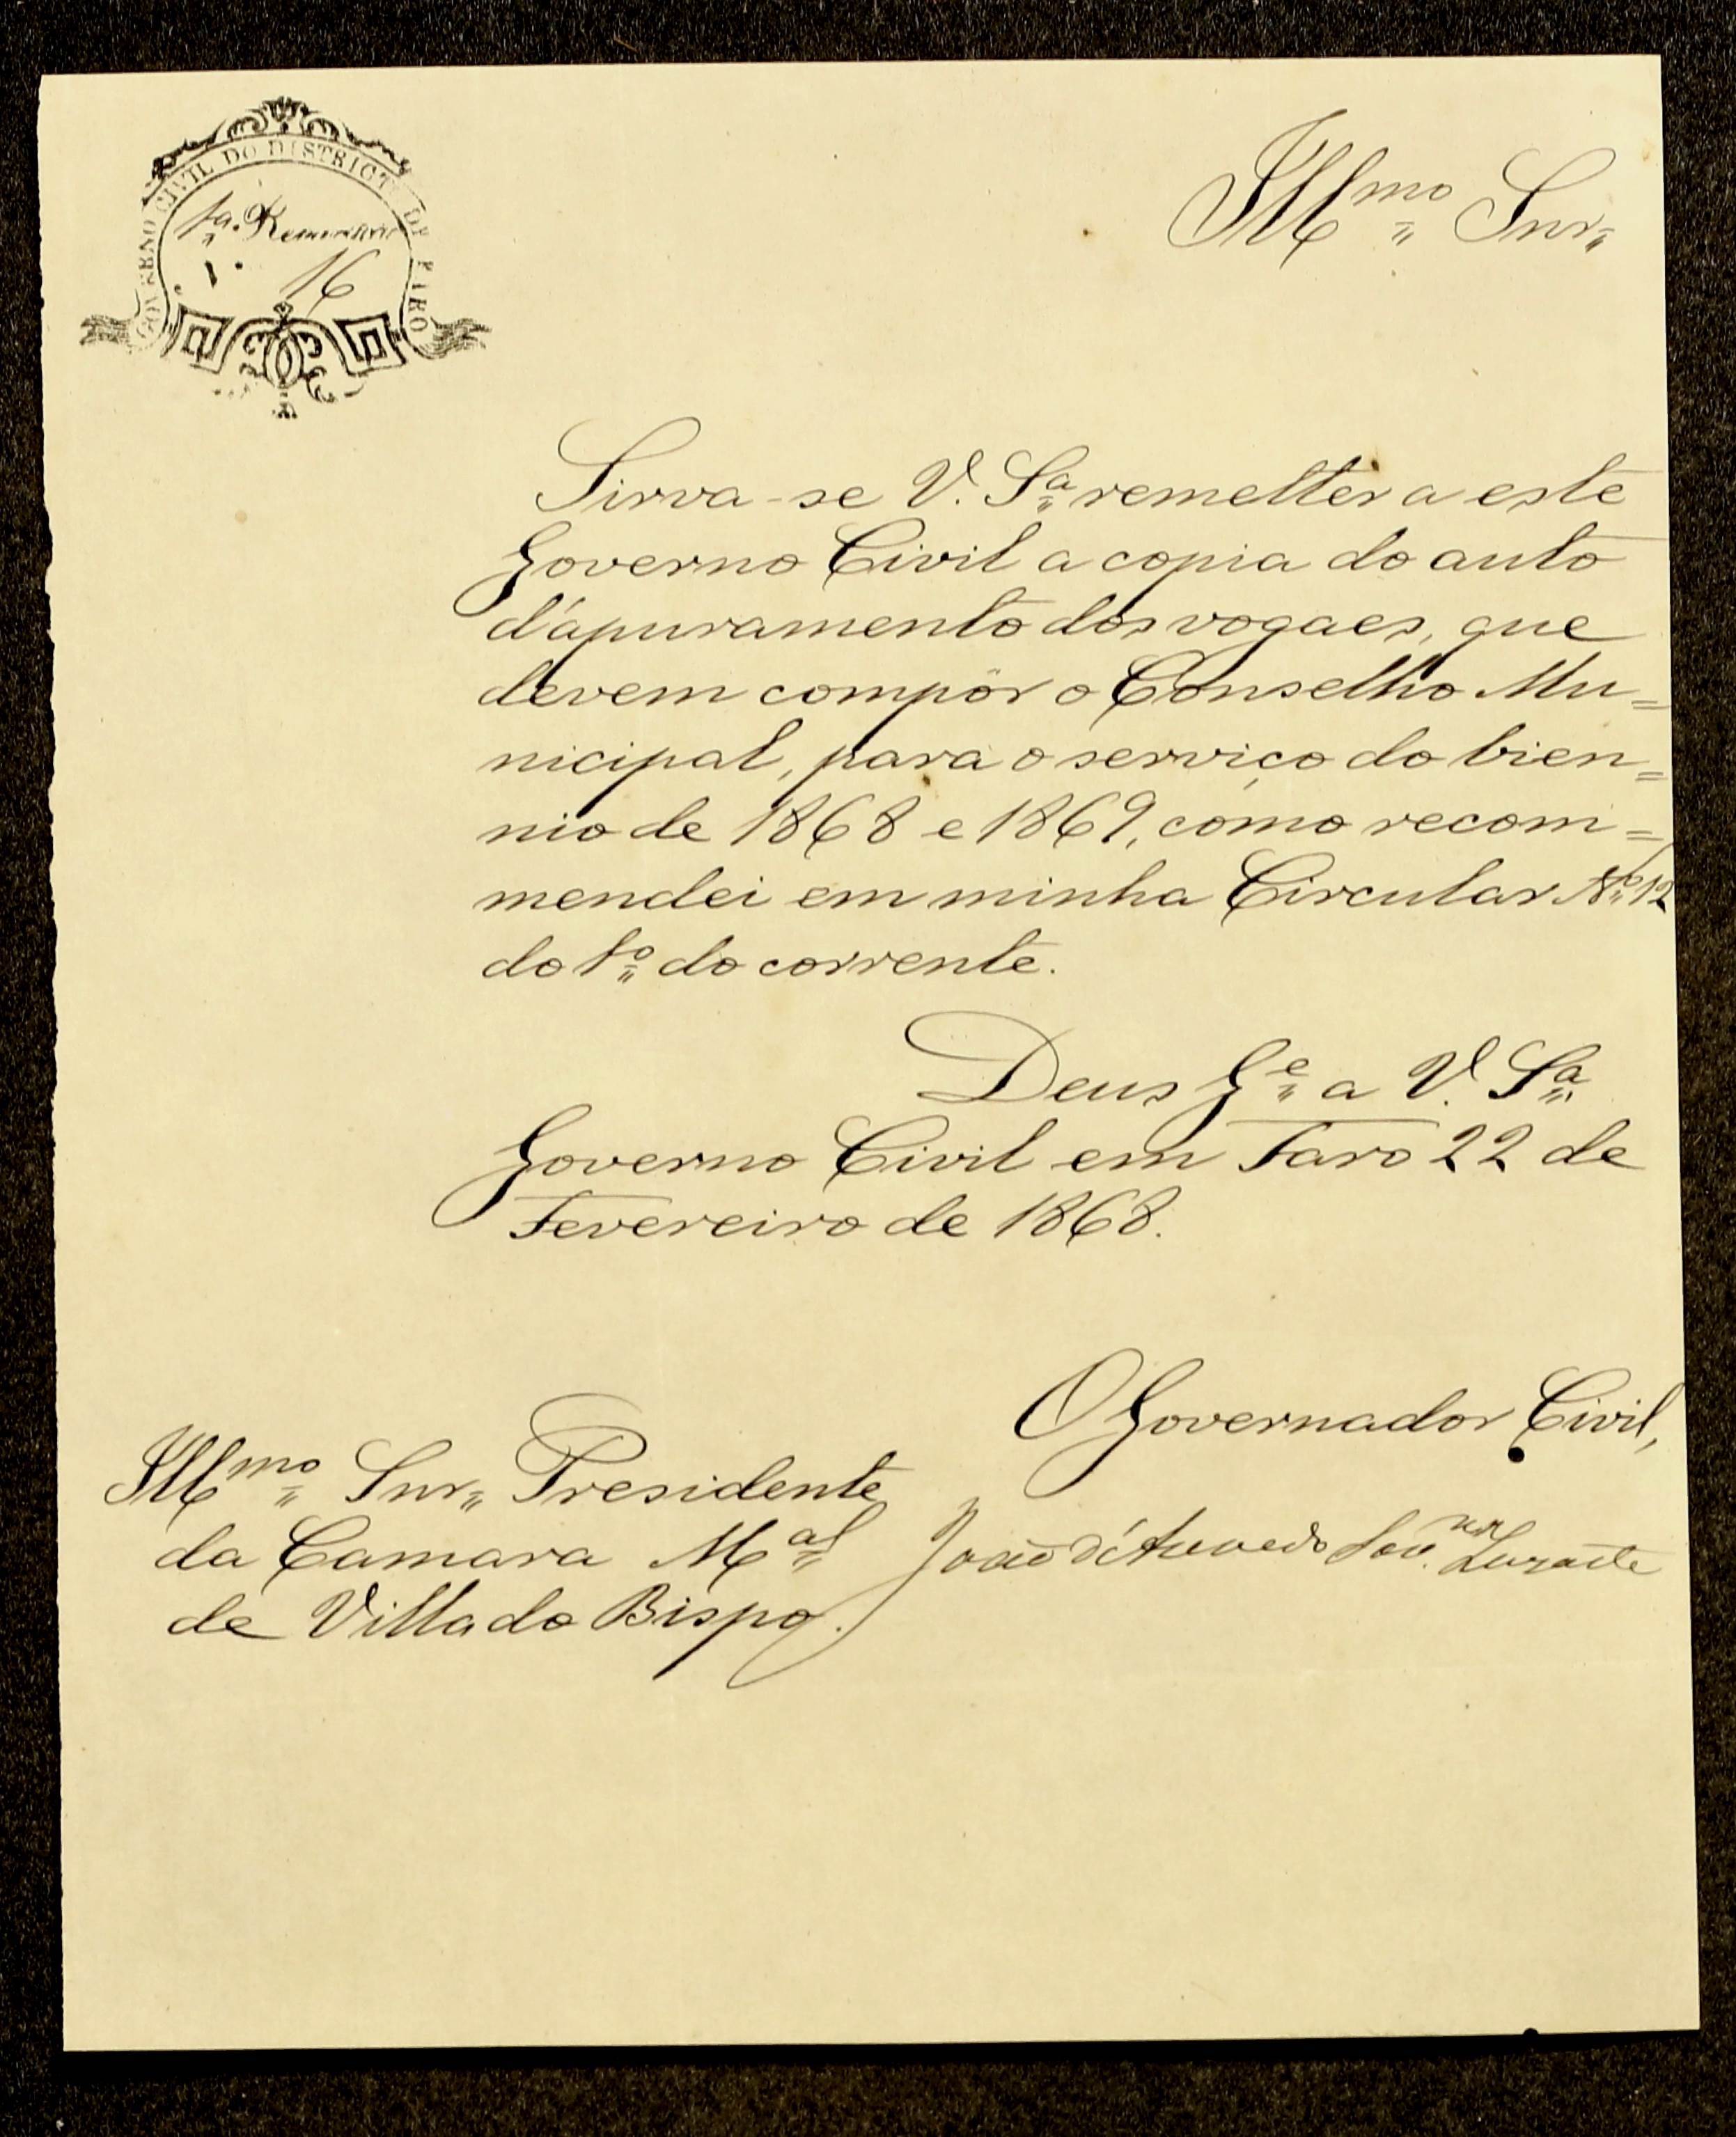 GOVERNO CIVIL DO DISTRICTO DE FARO
1ª
16
Illmo Snr
Sirva-se V. Sª remetter a este
Governo Civil a copia do auto
d'apuramento dos vogaes, que
devem compôr o Conselho Mu=
nicipal, para o serviço do bien=
nio de 1868 e 1869, como recom=
mendei em minha Circular Nº 12
do 1º do corrente.
Deus Ge a V. Sª
Governo Civil em Faro 22 de
Fevereiro de 1868.
O Governador Civil,
Illmo Snr Presidente
da Camara Mal
de Villa do Bispo.
João